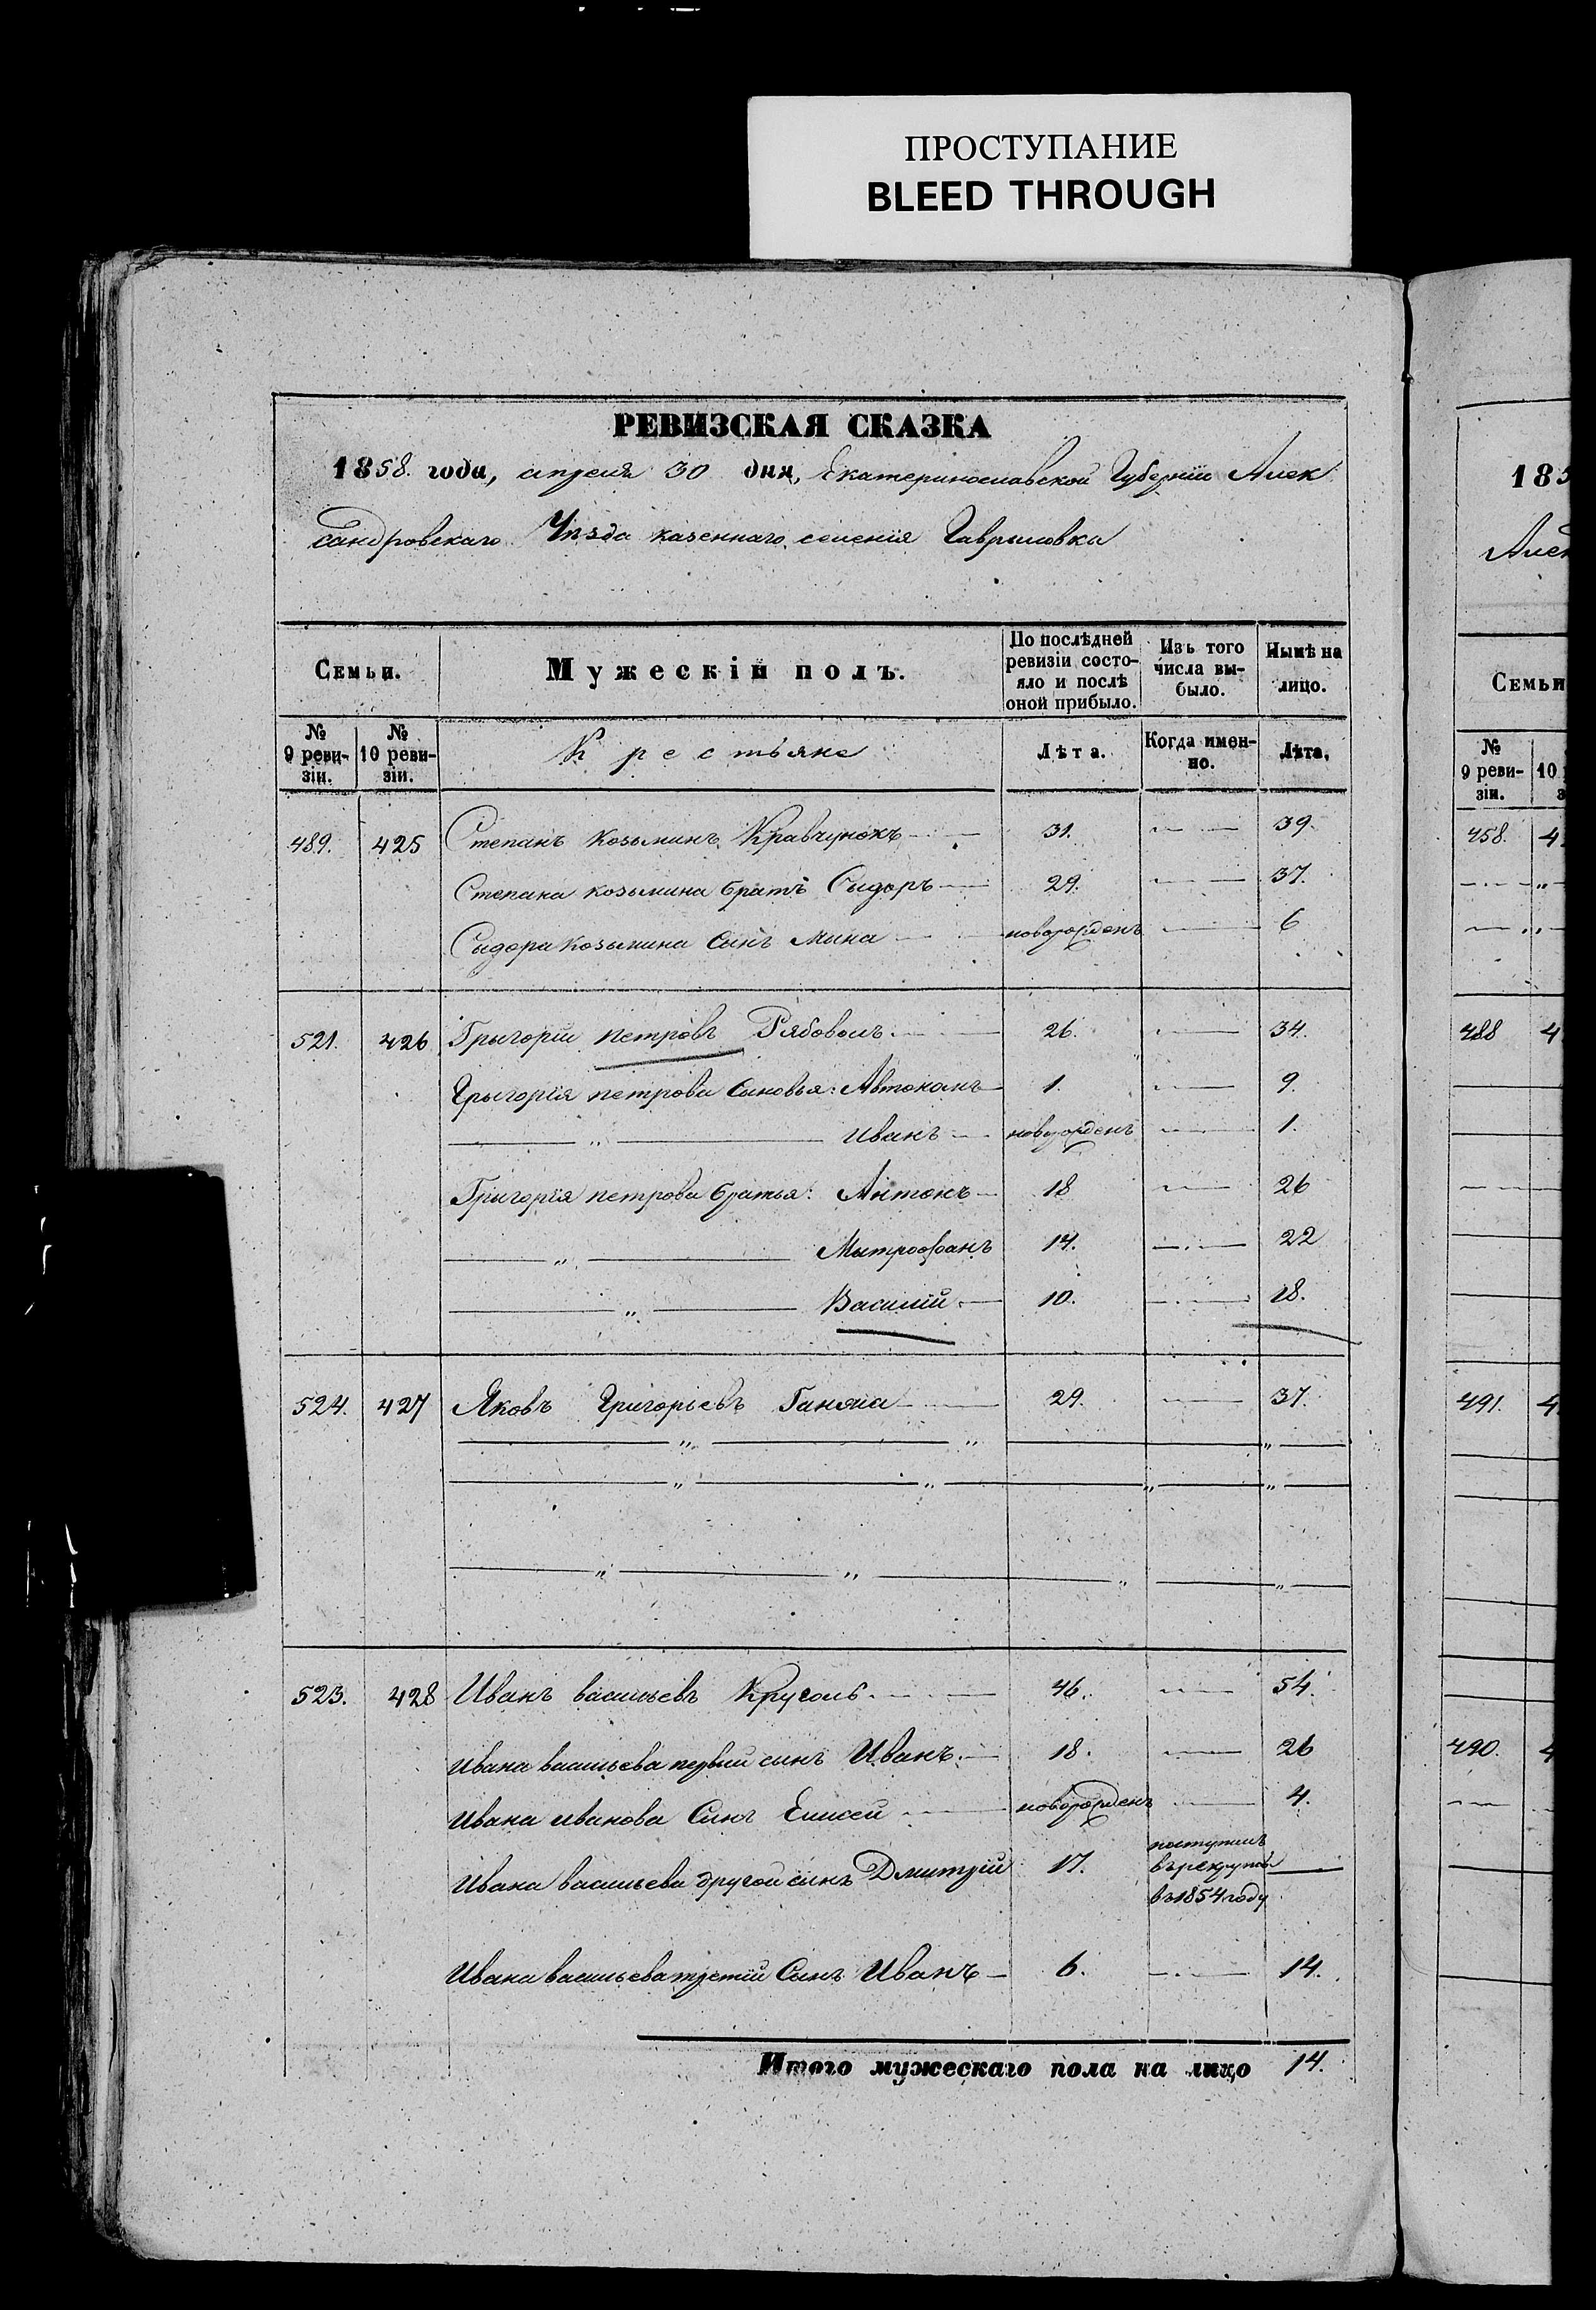 ПРОСТУПАНИЕ
BLEED THROUGH
РЕВИЗСКАЯ СКАЗКА
1858. года, апреля 30 дня, Екатеринославской Губерніи Алек
сандровскаго Уѣзда казеннаго селенія Гавриловка
Семьи. Мужескій полъ. По послѣдней ревизіи состояло и послѣ оной прибыло. Изъ того числа выбыло. Нынѣ на лицо.
№ 9 ревизіи. № 10 ревизіи. Крестьяне Лѣта. Когда именно. Лѣта.
489. 425 Степанъ Козьминъ Кравчунокъ 31. 39.
Степана козьмина братъ Сыдоръ 29. 37.
Сыдора козьмина Сынъ Мина новорожденъ 6
521. 426 Григорій петровъ Рябоволъ 26. 34.
Григорія петрова Сыновья: Автономъ 1. 9.
„ Иванъ новорожденъ 1.
Григорія петрова братья: Антонъ 18 26
„ Митрофанъ 14. 22
„ Василій 10. 18.
524. 427 Яковъ Григорьевъ 29. 37.
523. 428 Иванъ васильевъ Круголь 46. 54.
Ивана васильева первый сынъ Иванъ 18. 26
Ивана иванова Сынъ Елисей новорожденъ 4.
Ивана васильева другой сынъ Дмитрій 17. поступилъ
въ рекруты
въ 1854 году
Ивана васильева третій Сынъ Иванъ 6. 14.
Итого мужескаго пола на лицо 14.
185
Алек
Семьи
№ 9 ревизіи. 10
458. 4
488 4
491. 4
490. 4